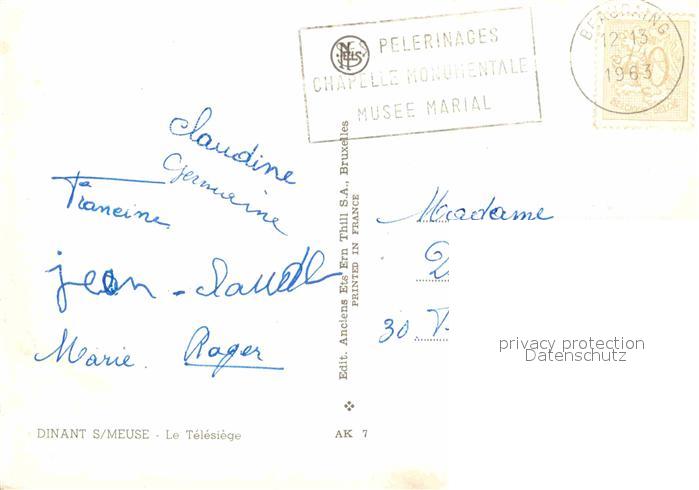 PELERINAGES
CHAPELLE MONUMENTALE
MUSEE MARIAL
BEAURAING
12-13
1963
Claudine
Germaine
Francine
jean-claude
Marie. Roger
Edit. Anciens Ets Ern Thill S.A., Bruxelles
PRINTED IN FRANCE
Madame
30
privacy protection
Datenschutz
DINANT S/MEUSE - Le Télésiège
AK 7